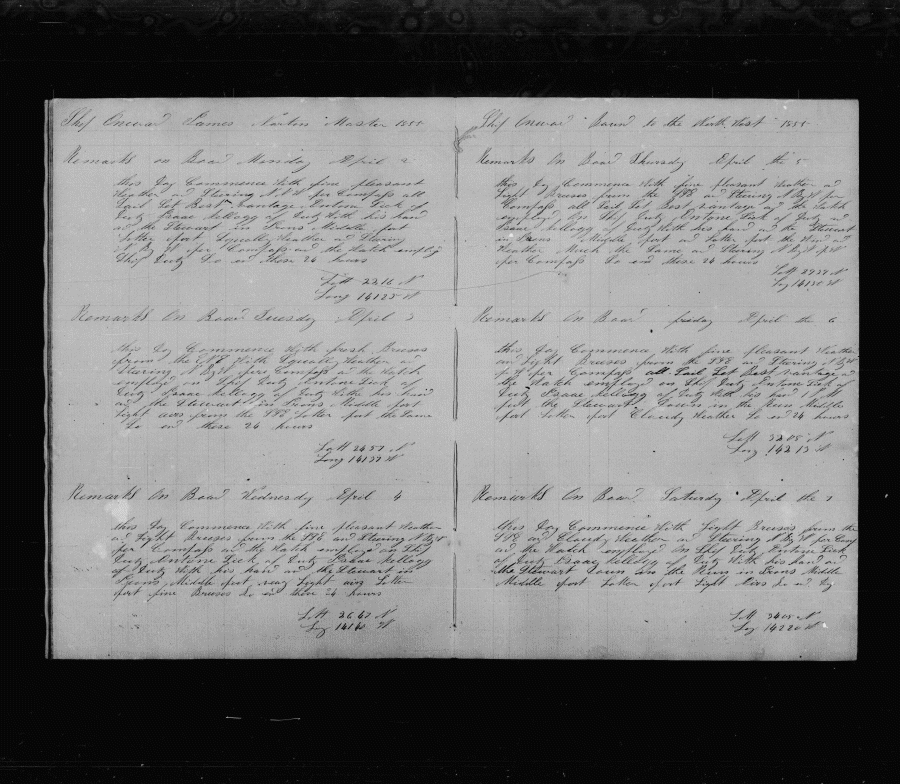 Ship Onward James Norton Master 1855
Remarks on Board Monday April 2
this Day Commence With fine pleasant
Weather and Stearing N by W per Compass all
Sail Set Best vantage Antone Sick of
Duty Isaac Kellogg of Duty With his hand
and the Stewart in Irons Middle part
Latter part Squally Weather and Stearing
per Compass and the Watch employ
Ship Duty So end these 24 hours
Latt 22 16 N
Long 141 25 W
Remarks On Board Tuesday April 3
this Day Commence With fresh Breeses
from the ENE With Squally Weather and
Stearing N by W per Compass and the Watch
employed on Ship Duty Antone Sick of
Duty Isaac Kellogg of Duty With his hand
and the Stewart in Irons Middle part
Light airs from the ENE Latter part the Same
So end these 24 hours
Latt 24 57 N
Long 141 37 W
Remarks On Board Wednesday April 4
this Day Commence With fine pleasant Weather
and Light Breeses from the ENE and Stearing N by W
per Compass and the Watch employd on Ship
Duty Antone Sick of Duty Isaac Kellogg
of Duty With his hand and the Stewart in
Irons Middle part very Light airs Latter
part fine Breeses So end these 24 hours
Latt 26 42 N
Long 141 W
Ship Onward Bound to the North West 1855
Remarks On Board Thursday April the 5
this Day Commence With fine pleasant Weather and
Light Breeses from the ENE and Stearing N by W per
Compass all Sail Set Best vantage and the Watch
employd On Ship Duty Antone Sick of Duty and
Isaac Kellogg of Duty With his hand and the Stewart
in Irons Middle part and Latter part the Wind and
Weather Much the Same and Stearing N by W
per Compass So end these 24 hours
Latt 29 39 N
Long 141 50 W
Remarks On Board friday April the 6
this Day Commence With fine pleasant Weather
and Light Breeses from the ENE and Stearing
per Compass all Sail Set Best vantage and
the Watch employd on Ship Duty Antone Sick of
Duty Isaac Kellogg of Duty With his hand
the Stewart Down in the Run Middle
part Latter part Cloudy Weather So end 24 hours
Latt 32 05 N
Long 142 13 W
Remarks On Board Saturday April the 7
this Day Commence With Light Breeses from the
ENE and Cloudy Weather and Stearing N by W per Comp
and the Watch employd On Ship Duty Antone Sick
of Duty Isaac Kellogg of Duty With his hand and
the Stewart Down in the Run in Irons Middle
Middle part Latter part Light Airs So end Dy
Latt 34 05 N
Long 142 20 W